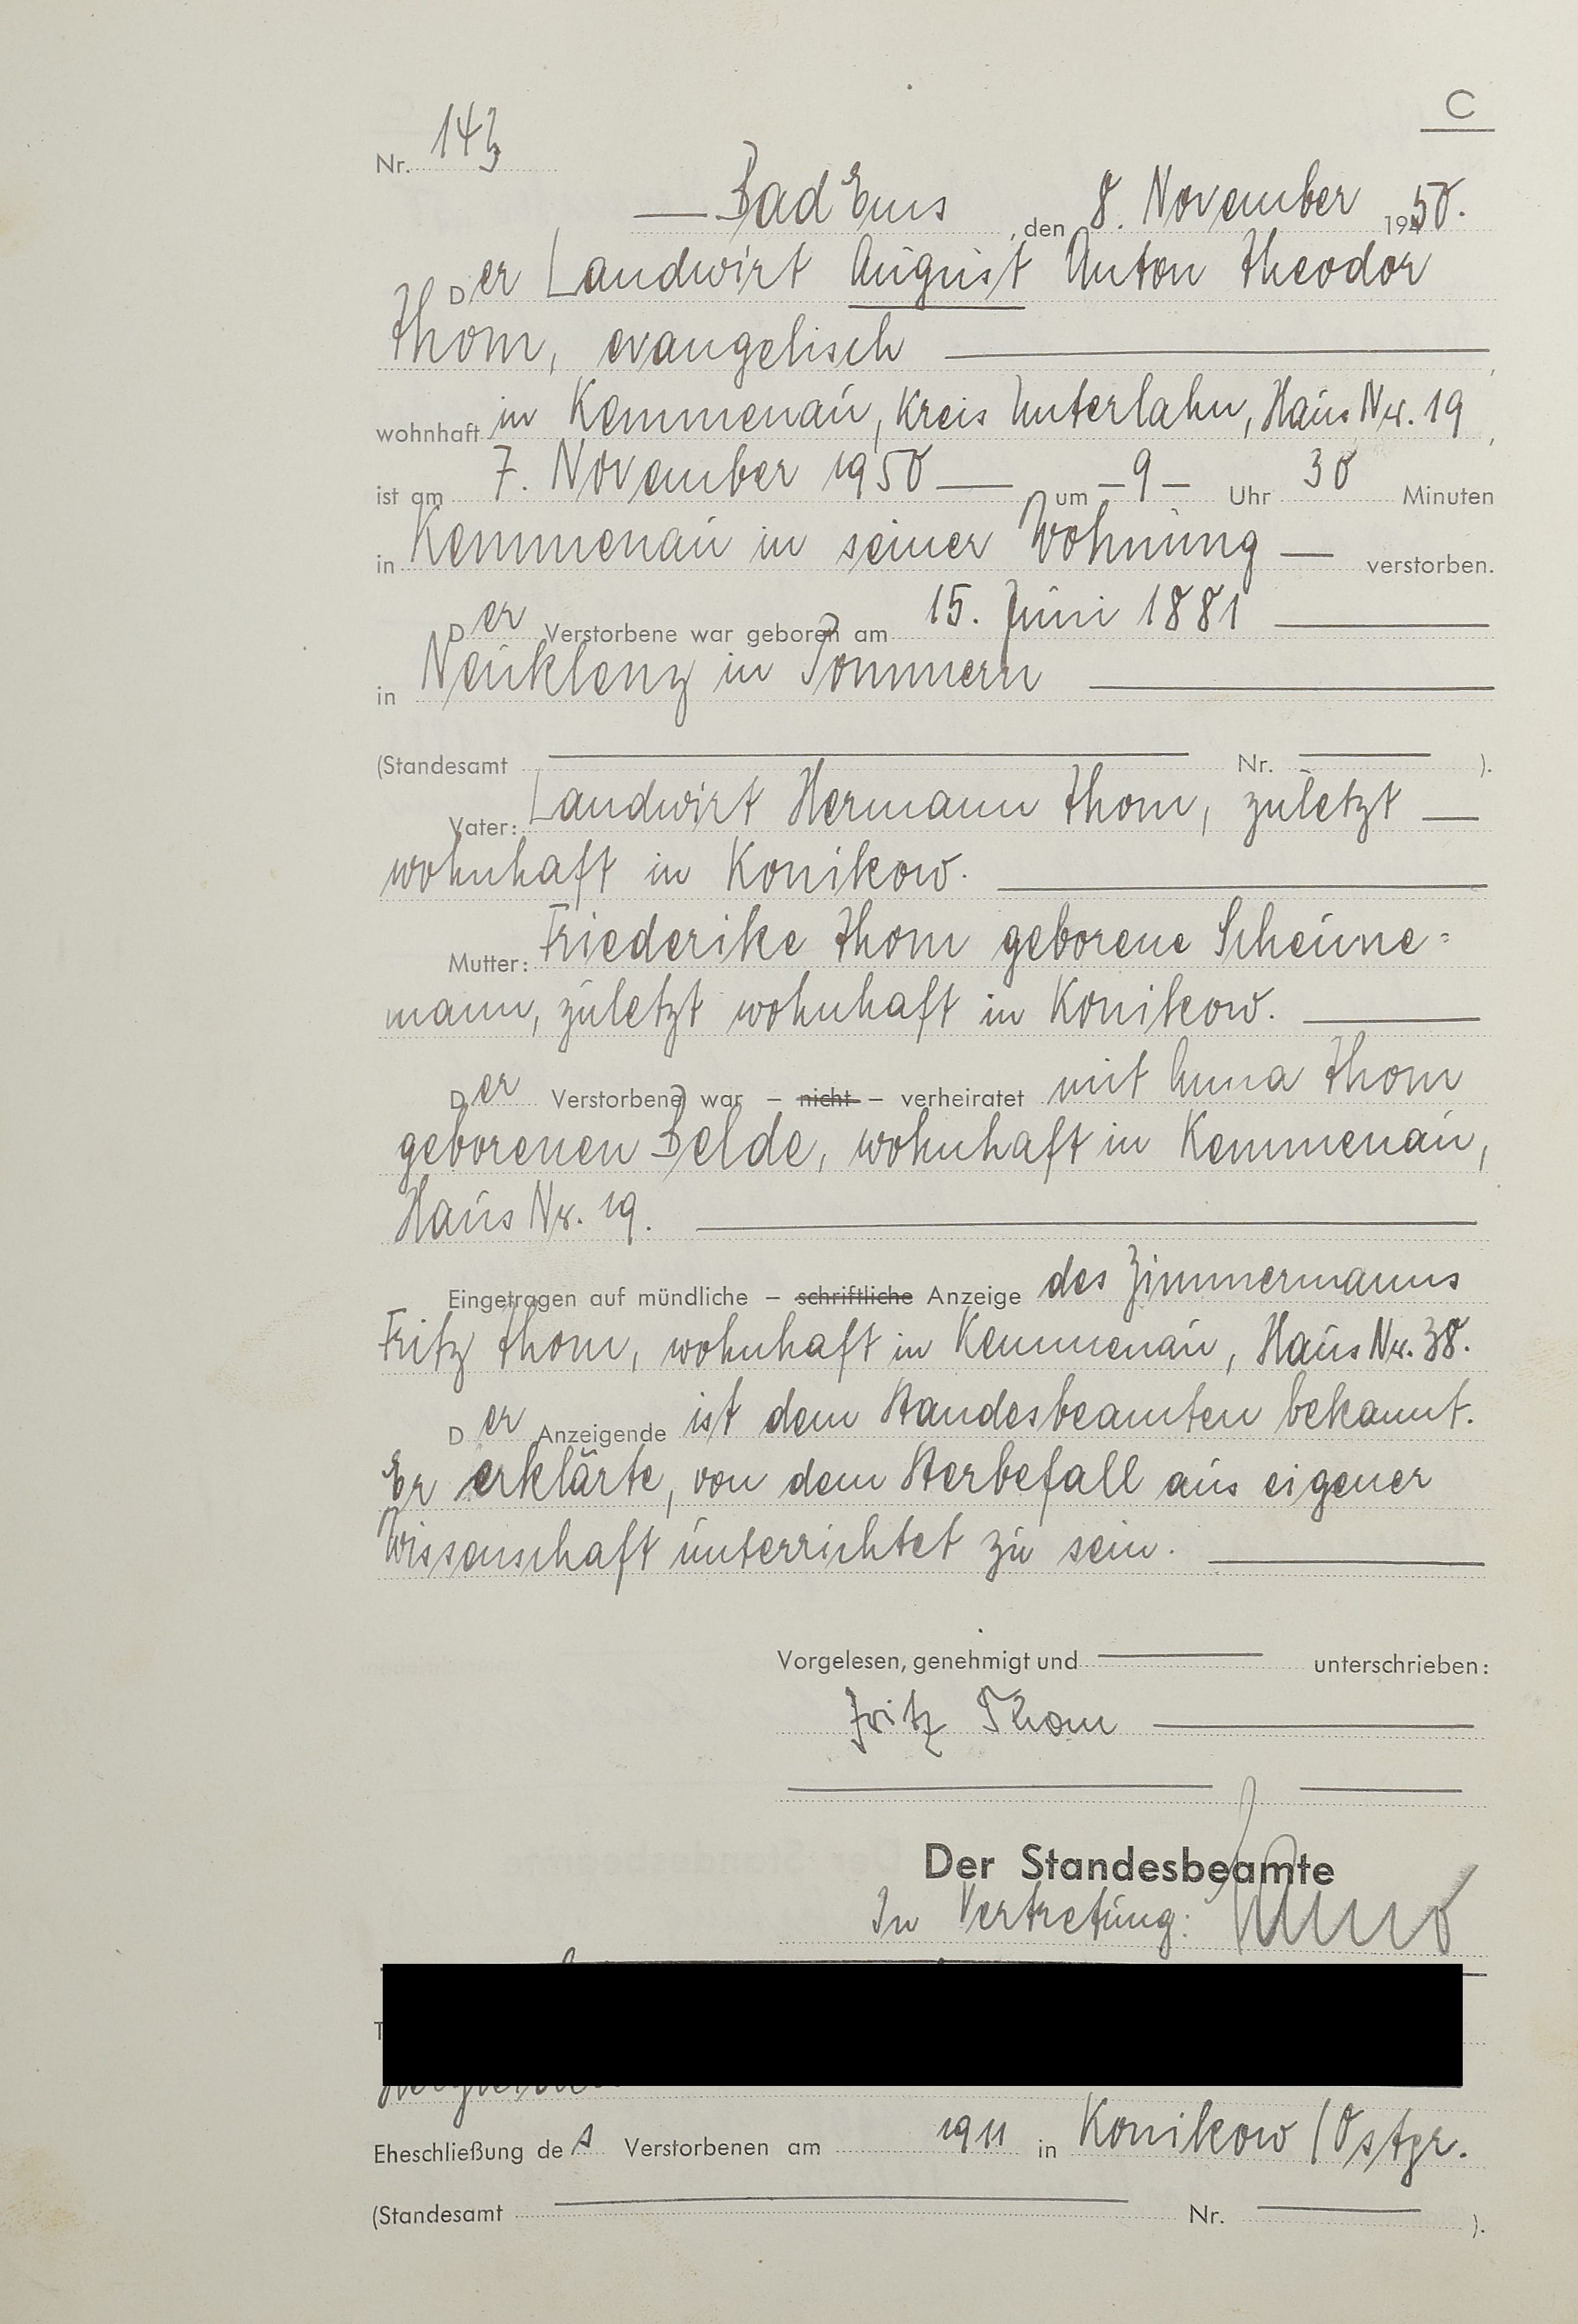 C
Nr. 143
Bad Ems, den 8. November 1950.
Der Landwirt August Anton Theodor
Thom, evangelisch
wohnhaft in Kemmenau, Kreis Unterlahn, Haus Nr. 19,
ist am 7. November 1950 um - 9 - Uhr 30 Minuten
in Kemmenau in seiner Wohnung verstorben.
Der Verstorbene war geboren am 15. Juni 1881
in Neuklenz in Pommern
(Standesamt Nr. ).
Vater: Landwirt Hermann Thom, zuletzt
wohnhaft in Konikow.
Mutter: Friederike Thom geborene Scheune=
mann, zuletzt wohnhaft in Konikow.
Der Verstorbene war – nicht – verheiratet mit Anna Thom
geborenen Belde, wohnhaft in Kemmenau,
Haus Nr. 19.
Eingetragen auf mündliche – schriftliche Anzeige des Zimmermanns
Fritz Thom, wohnhaft in Kemmenau, Haus Nr. 38.
Der Anzeigende ist dem Standesbeamten bekannt.
Er erklärte, von dem Sterbefall aus eigener
Wissenschaft unterrichtet zu sein.
Vorgelesen, genehmigt und unterschrieben:
Fritz Thom
Der Standesbeamte
In Vertretung:
Eheschließung des Verstorbenen am 1911 in Konikow (Ostgr.
(Standesamt Nr. ).